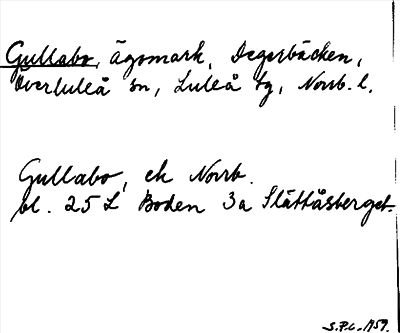 Gullabo, Ägomark, Degerbäcken,
Överluleå sn, Luleå tg, Norrb. l.
Gullabo, ek Norrb.
bl. 25 L Boden 3a Slåttåsberget.
S.P.L. 1959.